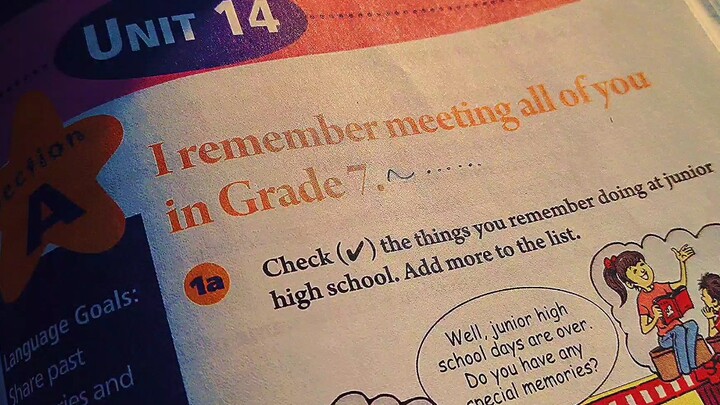 UNIT 14
I remember meeting all of you
in Grade 7.
Section
A
1a
Check (✔) the things you remember doing at junior
high school. Add more to the list.
Language Goals:
Share past
and
Well, junior high
school days are over.
Do you have any
special memories?